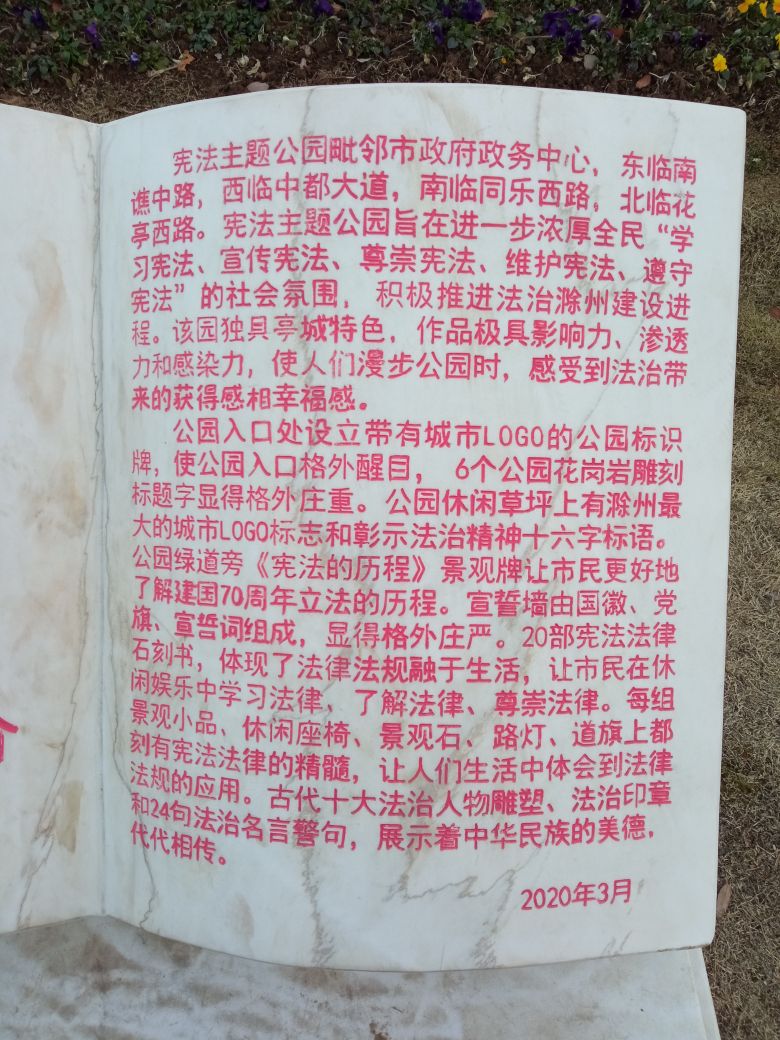 宪法主题公园毗邻市政府政务中心，东临南
谯中路，西临中都大道，南临同乐西路，北临花
亭西路。宪法主题公园旨在进一步浓厚全民“学
习宪法、宣传宪法、尊崇宪法、维护宪法、遵守
宪法”的社会氛围，积极推进法治滁州建设进
程。该园独具亭城特色，作品极具影响力、渗透
力和感染力，使人们漫步公园时，感受到法治带
来的获得感相幸福感。
公园入口处设立带有城市LOGO的公园标识
牌，使公园入口格外醒目，6个公园花岗岩雕刻
标题字显得格外庄重。公园休闲草坪上有滁州最
大的城市LOGO标志和彰示法治精神十六字标语。
公园绿道旁《宪法的历程》景观牌让市民更好地
了解建国70周年立法的历程。宣誓墙由国徽、党
旗、宣誓词组成，显得格外庄严。20部宪法法律
石刻书，体现了法律法规融于生活，让市民在休
闲娱乐中学习法律，了解法律、尊崇法律。每组
景观小品、休闲座椅、景观石、路灯、道旗上都
刻有宪法法律的精髓，让人们生活中体会到法律
法规的应用。古代十大法治人物雕塑、法治印章
和24句法治名言警句，展示着中华民族的美德，
代代相传。
2020年3月